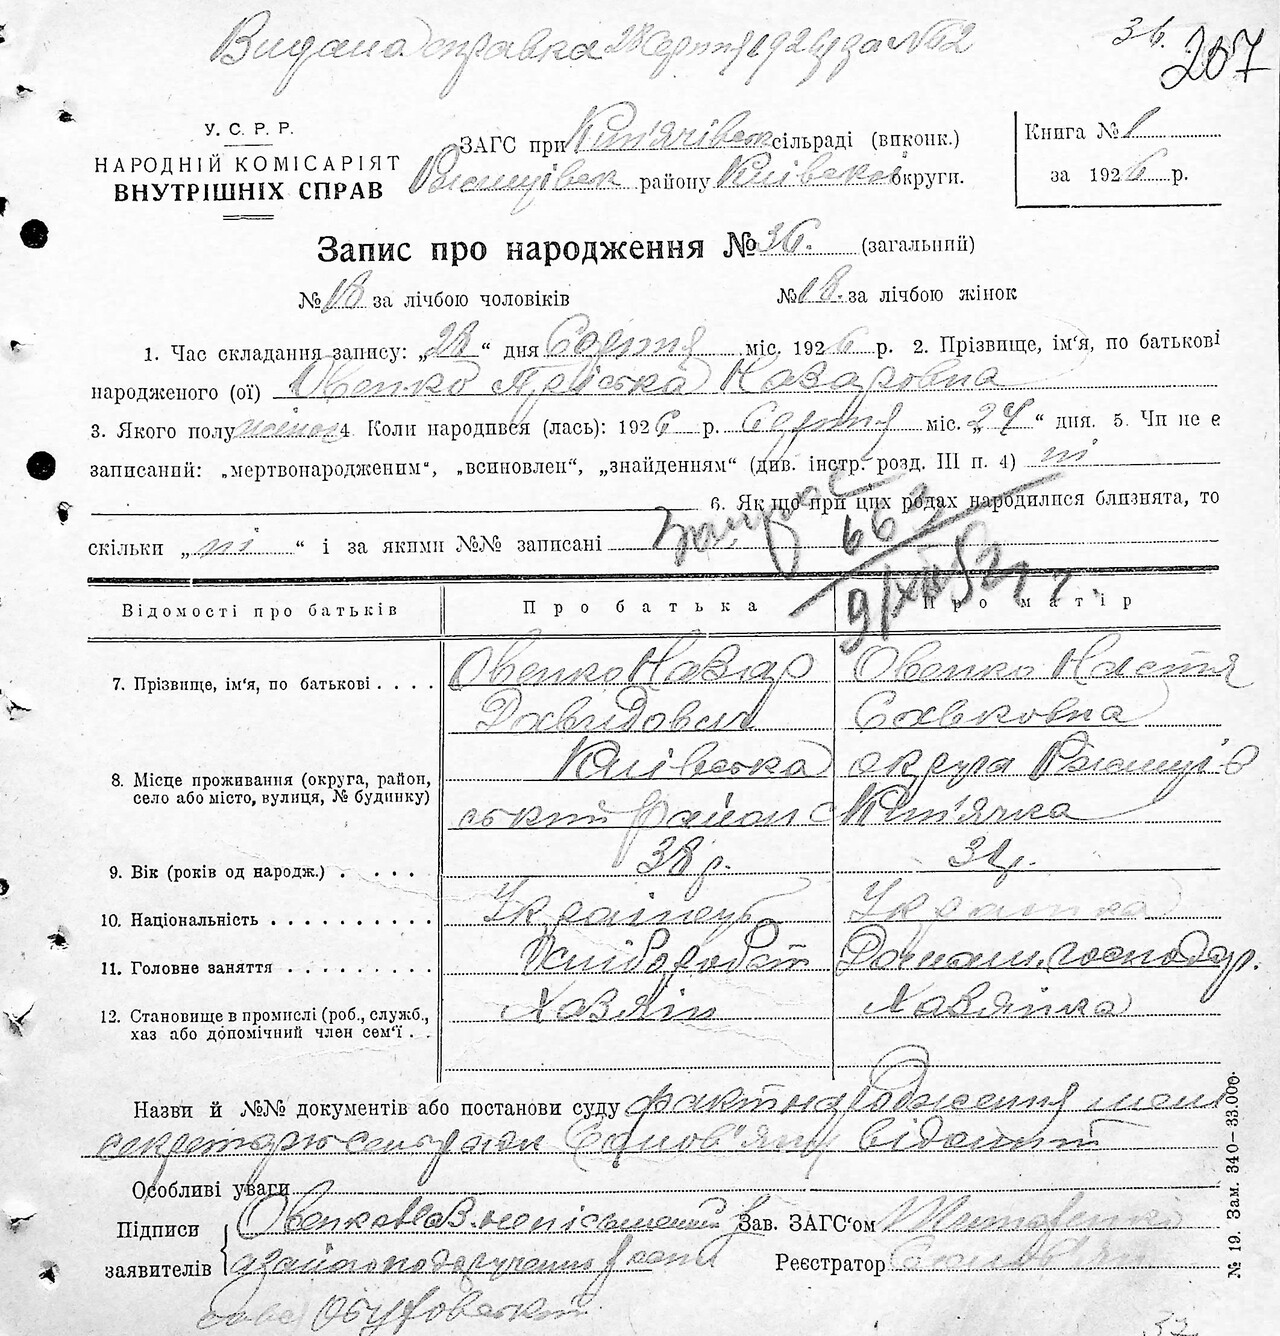 Видана справка 28 Серпня 1926 р за № 52
36.
207
У. С. Р. Р.
НАРОДНІЙ КОМІСАРІЯТ
ВНУТРІШНІХ СПРАВ
ЗАГС при Кип'ячівськ сільраді (виконк.)
району Київської округи.
Книга № 1
за 1926 р.
Запис про народження № 36. (загальний)
№ 18 за лічбою чоловіків № 18. за лічбою жінок
1. Час складання запису: „28“ дня Серпня міс. 1926 р. 2. Прізвище, ім'я, по батькові
народженого (ої) Овенко Пріська Назаровна
3. Якого полу жіноч 4. Коли народився (лась): 1926 р. Серпня міс. „27“ дня. 5. Чи не є
записаний: „мертвонародженим“, „всиновлен“, „знайденням“ (див. інстр. розд. III п. 4) ні
6. Якщо при цих родах народилися близнята, то
скільки „ні“ і за якими №№ записані
Запрос 662
9/XII 52 г.
Відомості про батьків Про батька Про матір
7. Прізвище, ім'я, по батькові . . . . Овенко Назар Овенко Настя
Давидович Савковна
8. Місце проживання (округа, район, Київська округа
село або місто, вулиця, № будинку) ський район с Кип'ячка
9. Вік (років од народж.) . . . . . 38 р. 31 р.
10. Національність . . . . . . . . . . Українець Українка
11. Головне заняття . . . . . . . . . Хлібороб Домаш. господар.
12. Становище в промислі (роб., служб.,
хаз або допомічний член сем'ї . . Хазяін Хазяйка
Назви й №№ документів або постанови суду факт народження мені
секретарю сельради відомий
Особливі уваги
Підписи Овенко Наз. неписьменний Зав. ЗАГС'ом
заявителів Реєстратор
№ 19. Зам. 340—33.000.
37